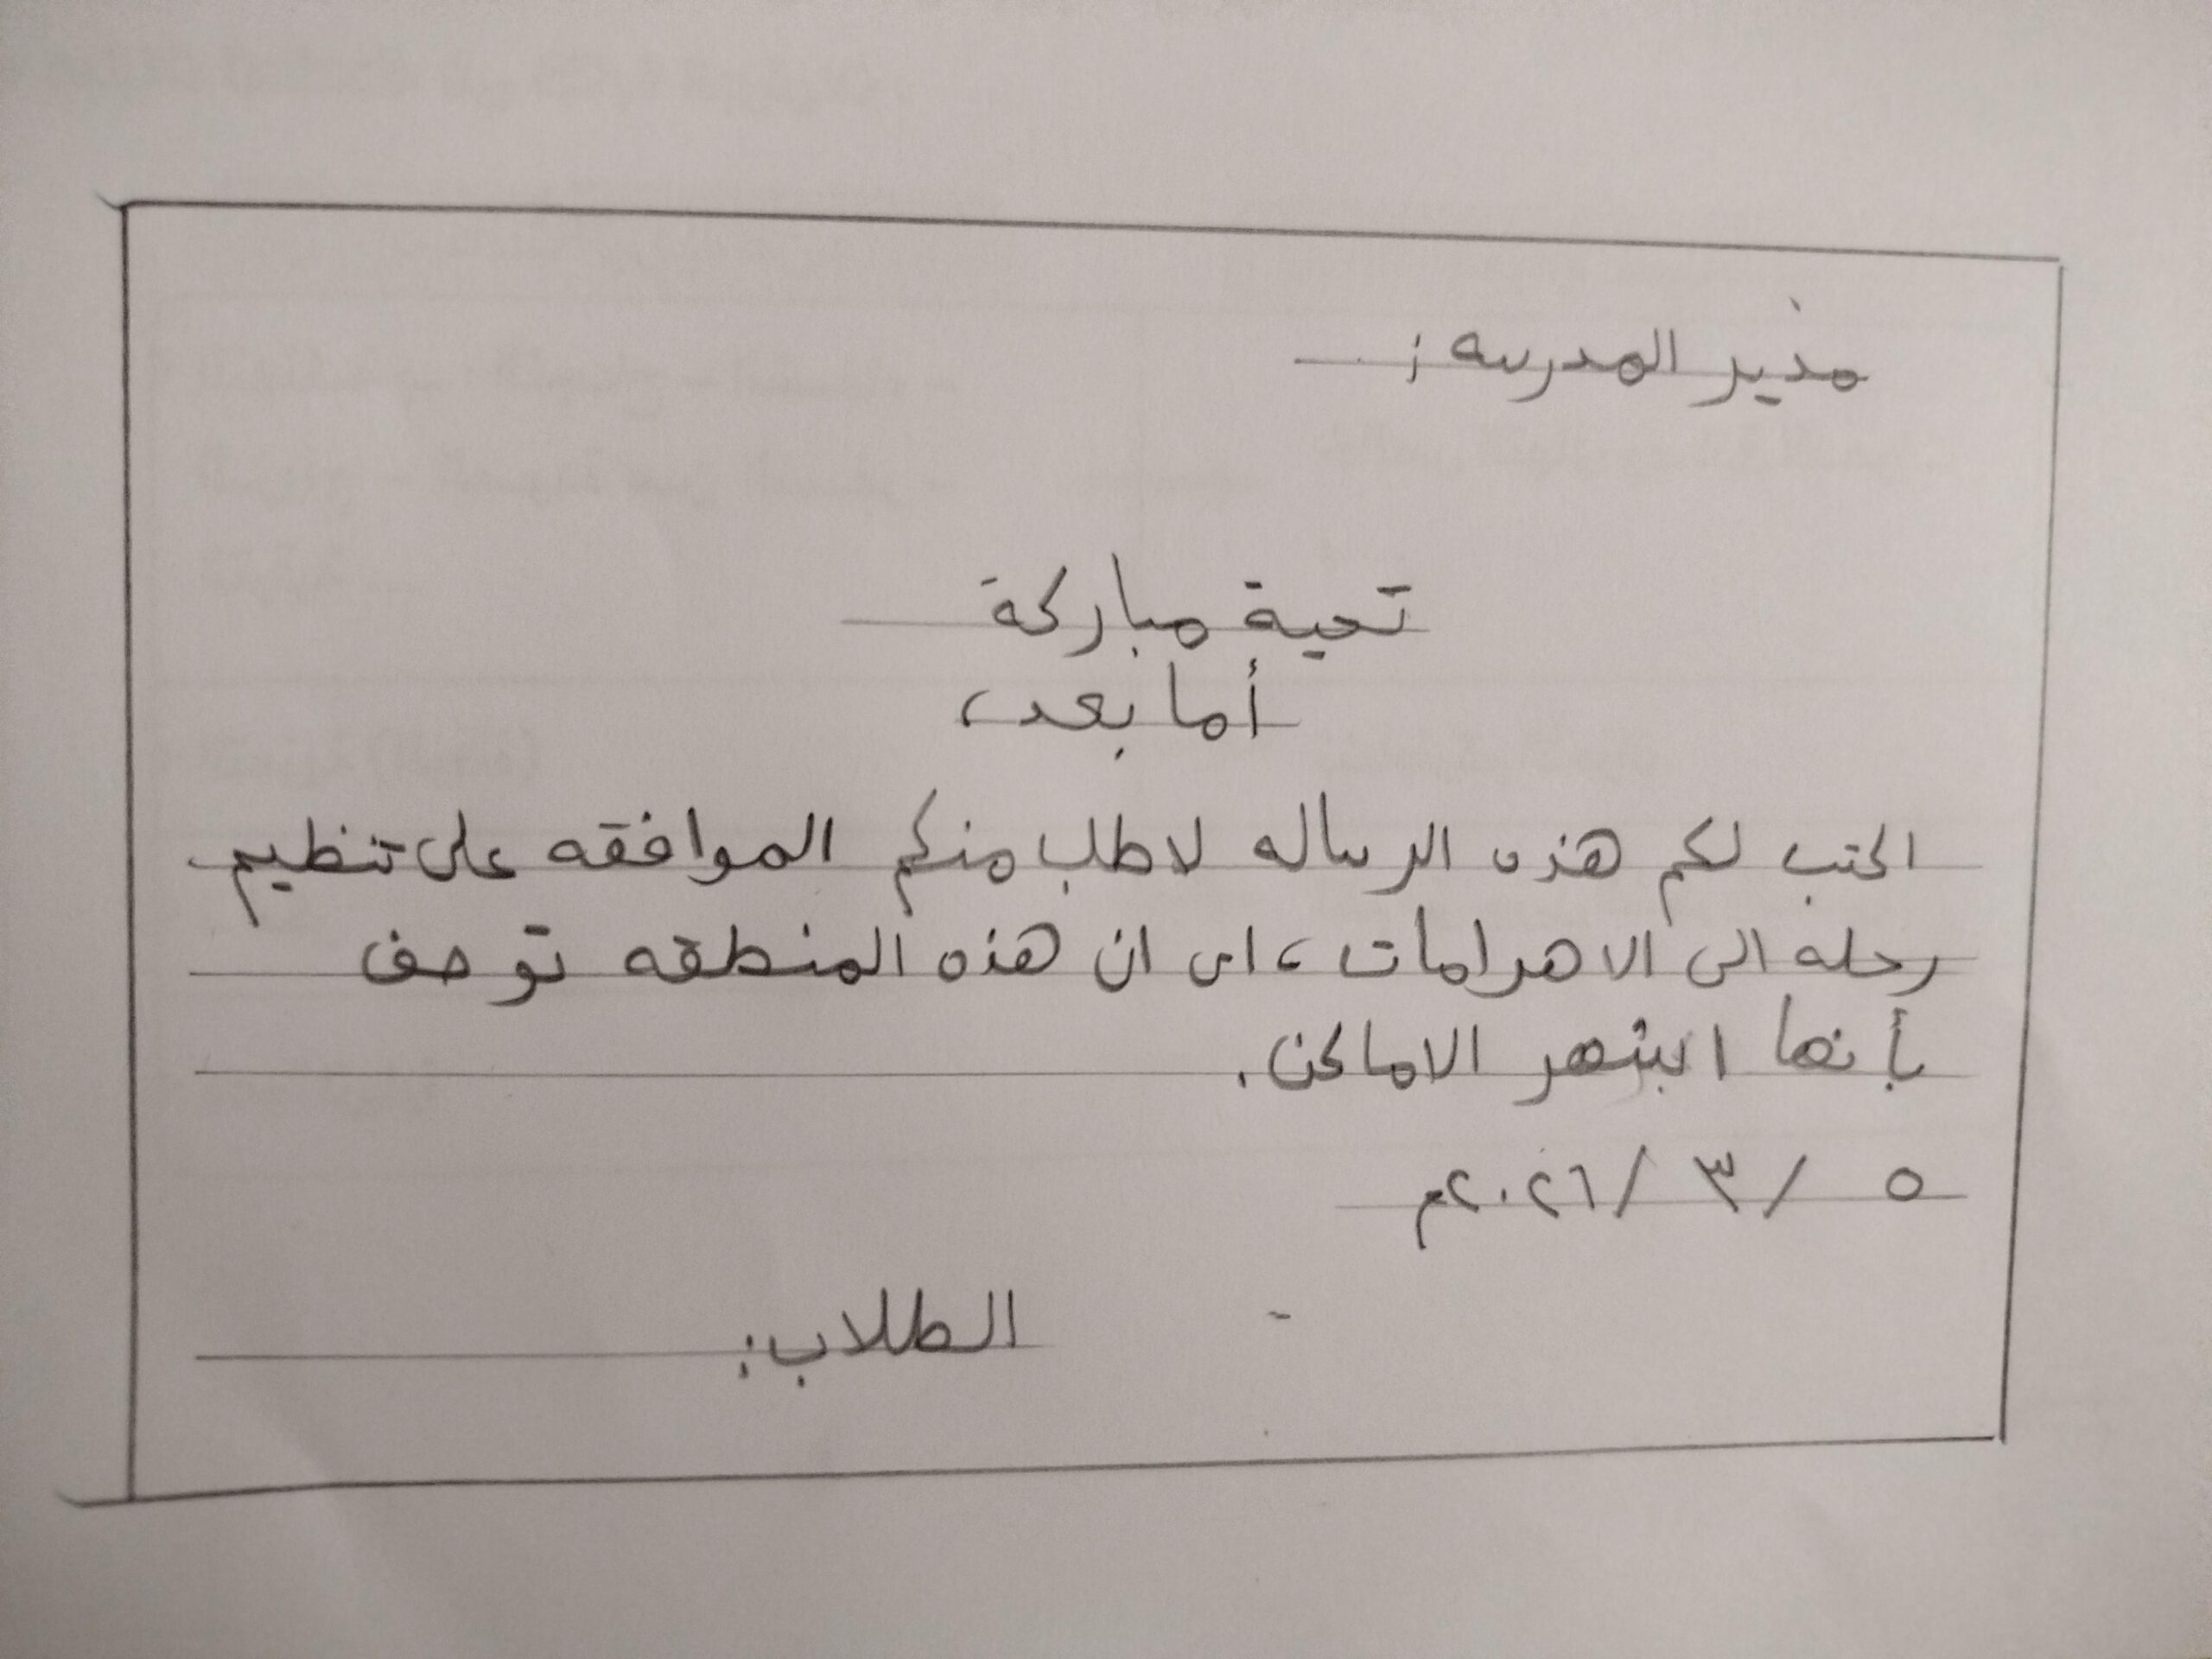 مدير المدرسه :
تحية مباركة
أما بعد،
اكتب لكم هذه الرساله لاطلب منكم الموافقه على تنظيم
رحله الى الاهرامات، اى ان هذه المنطقه توصف
بأنها اشهر الاماكن.
٥ / ٣ / ٢٠٢٦م
الطلاب: